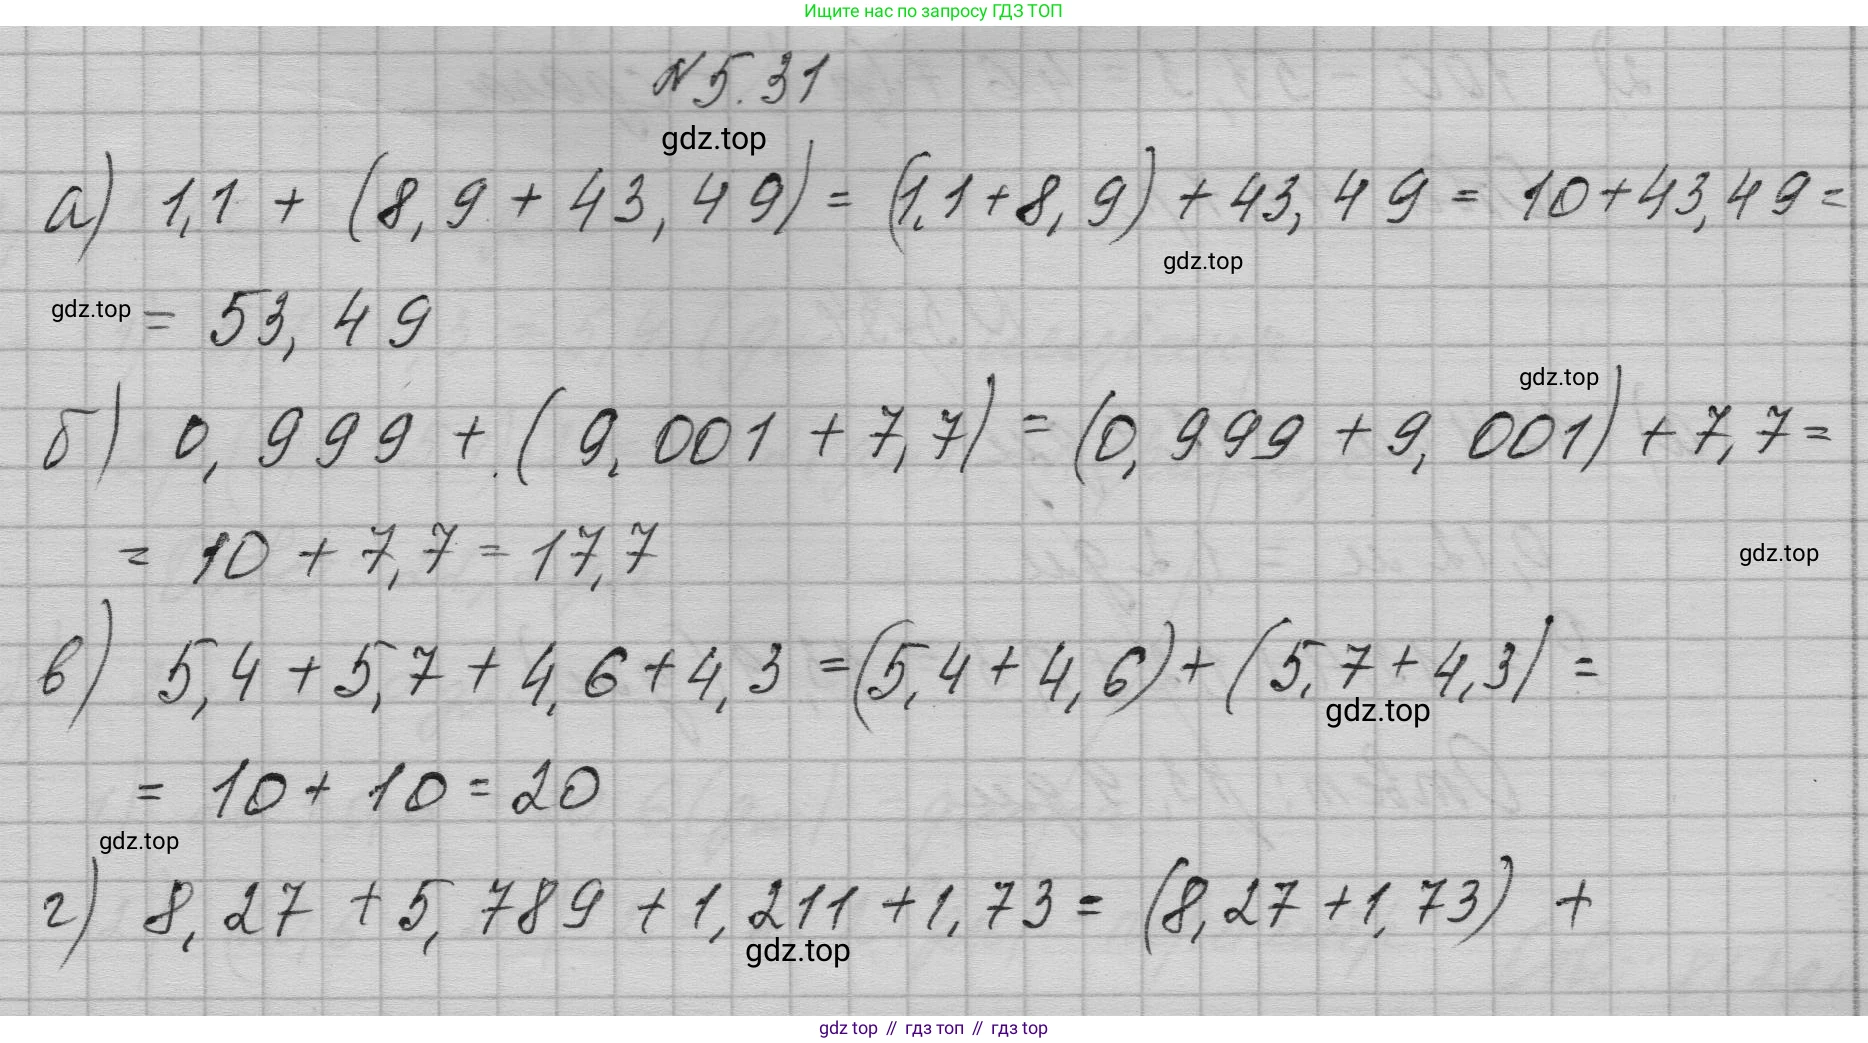 Ищите нас по запросу ГДЗ ТОП
№5.31
gdz.top
а) 1,1 + (8,9 + 43,49) = (1,1 + 8,9) + 43,49 = 10 + 43,49 =
gdz.top
gdz.top
= 53,49
gdz.top
б) 0,999 + (9,001 + 7,7) = (0,999 + 9,001) + 7,7 =
= 10 + 7,7 = 17,7
gdz.top
в) 5,4 + 5,7 + 4,6 + 4,3 = (5,4 + 4,6) + (5,7 + 4,3) =
gdz.top
= 10 + 10 = 20
gdz.top
г) 8,27 + 5,789 + 1,211 + 1,73 = (8,27 + 1,73) +
gdz.top
gdz top // гдз топ // гдз top